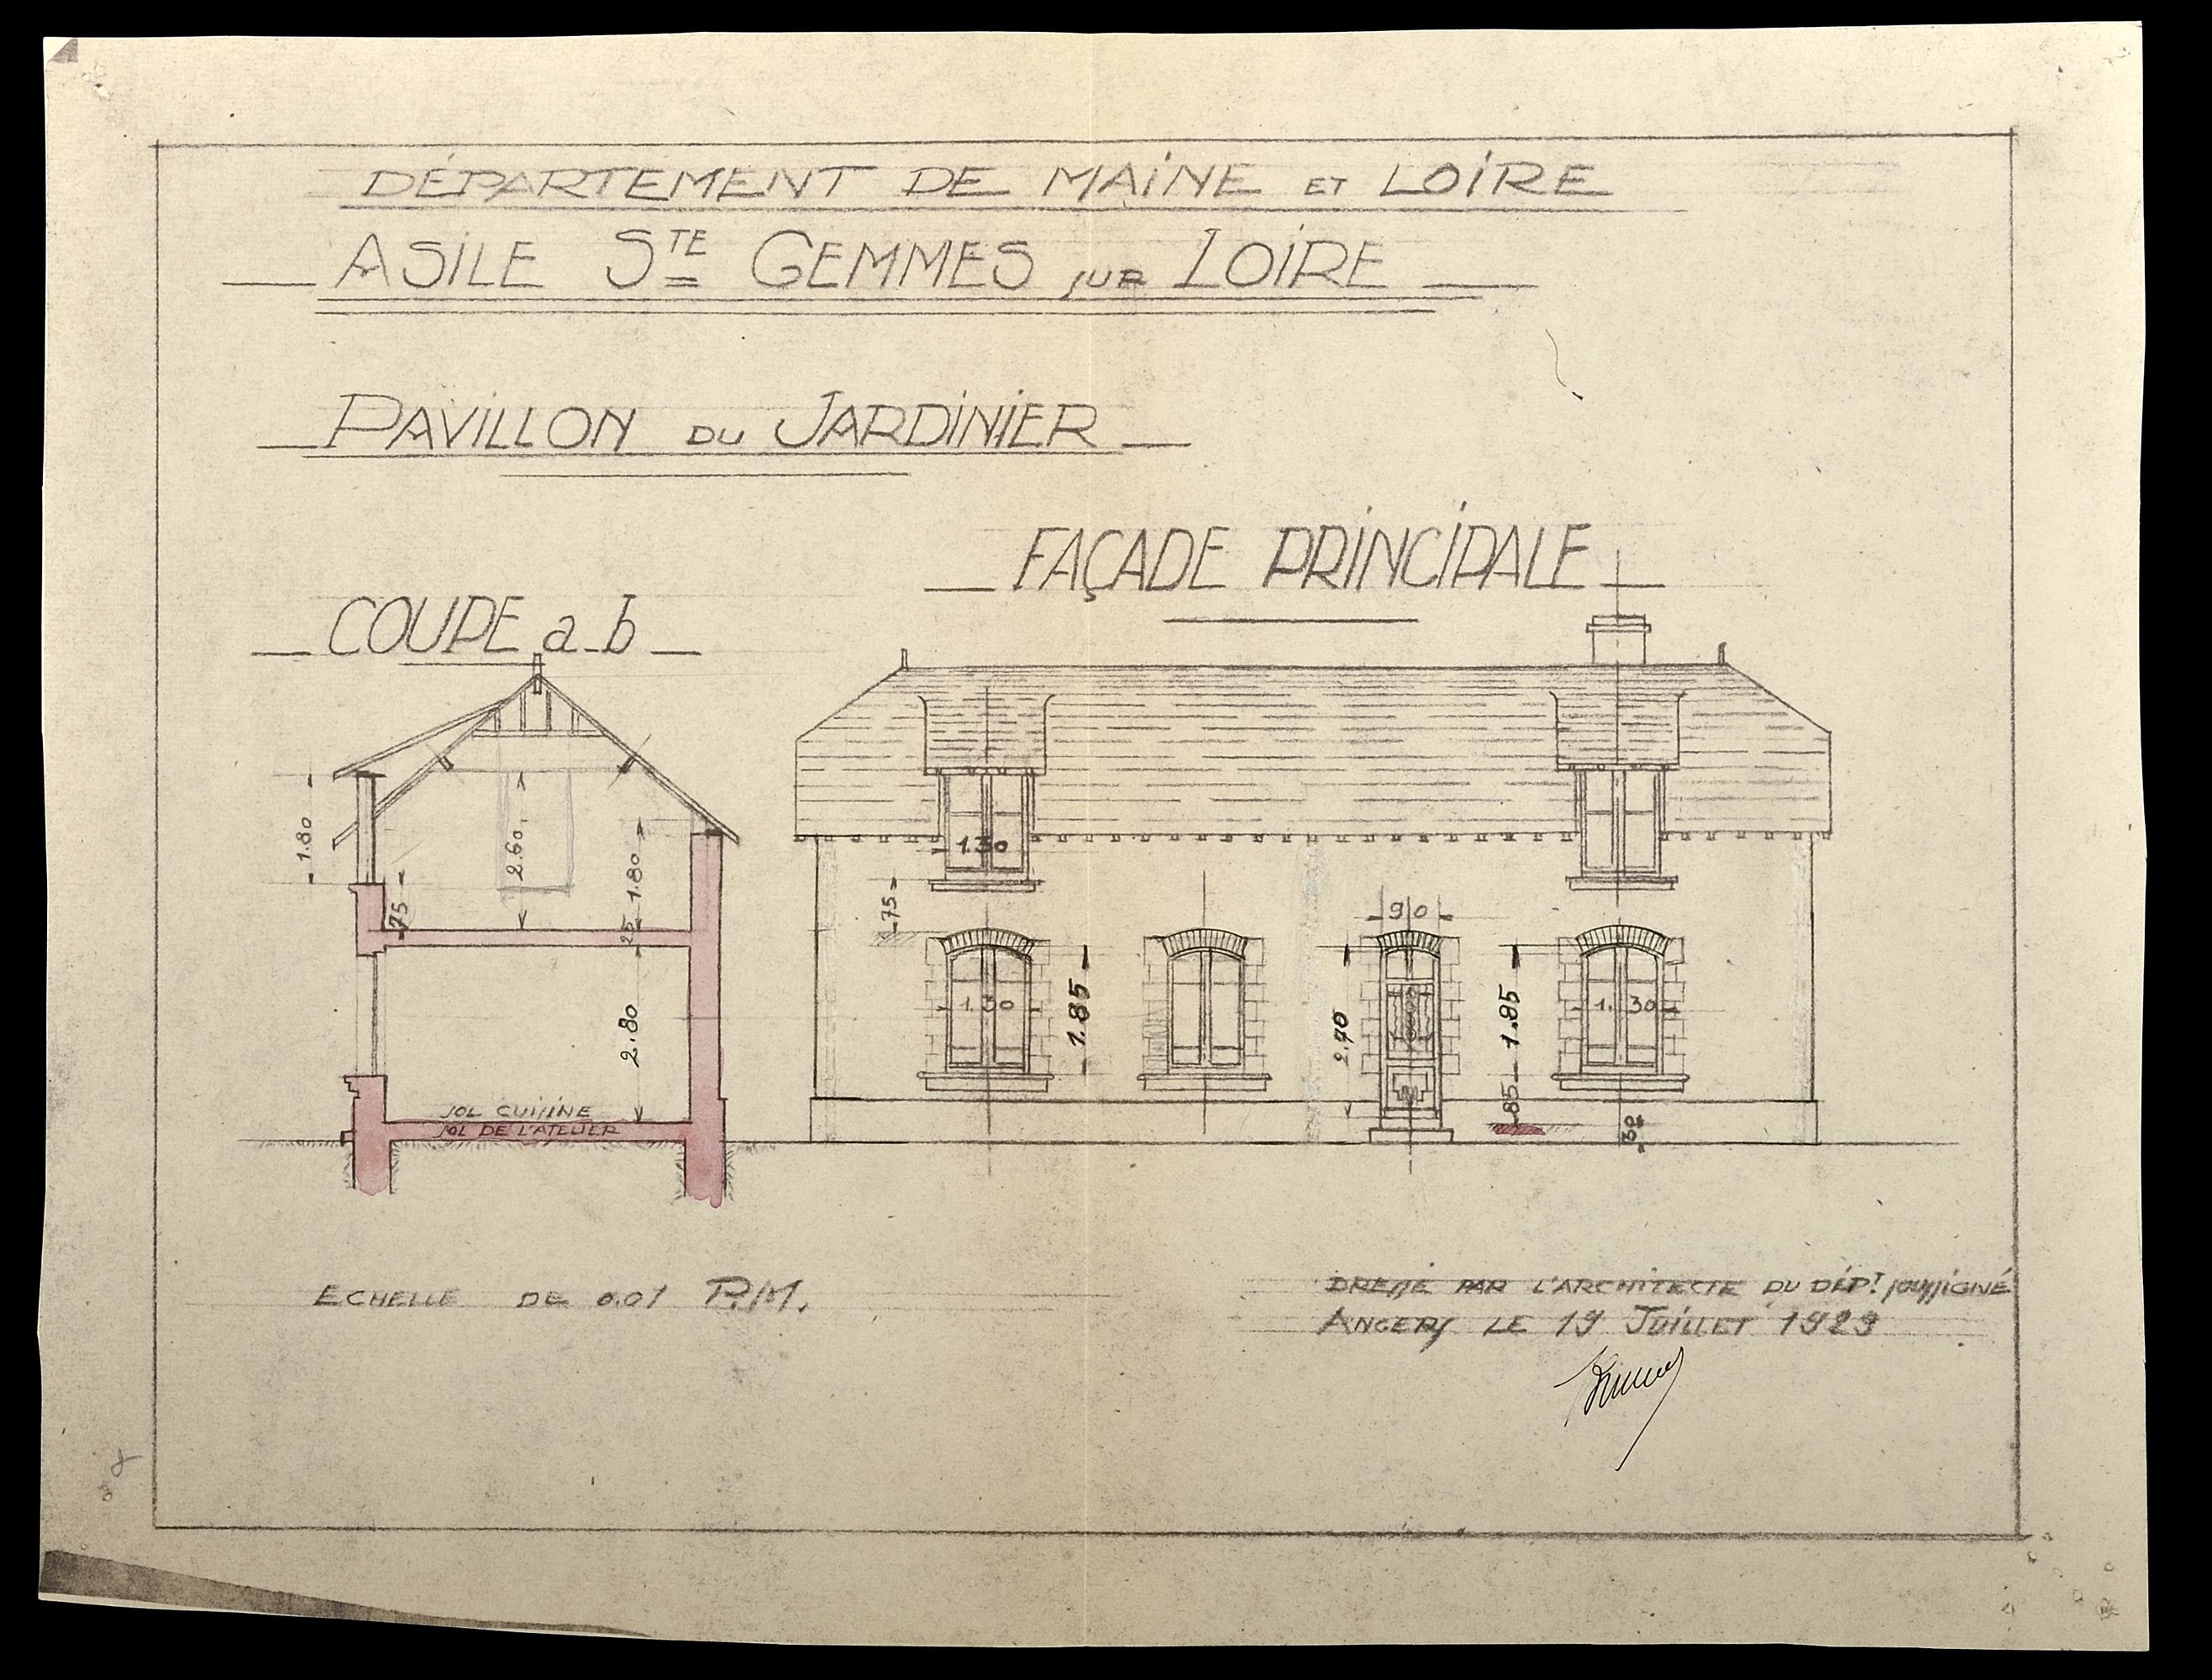 DÉPARTEMENT DE MAINE ET LOIRE
ASILE STE GEMMES SUR LOIRE
PAVILLON DU JARDINIER
FAÇADE PRINCIPALE
COUPE a-b
1.80
75
2.60
1.80
25
2.80
SOL CUISINE
SOL DE L'ATELIER
1.30
75
1.30
1.85
90
1.85
85
1.30
30
ECHELLE DE 0.01 P.M.
DRESSÉ PAR L'ARCHITECTE DU DÉPT. SOUSSIGNÉ
ANGERS LE 19 JUILLET 1929